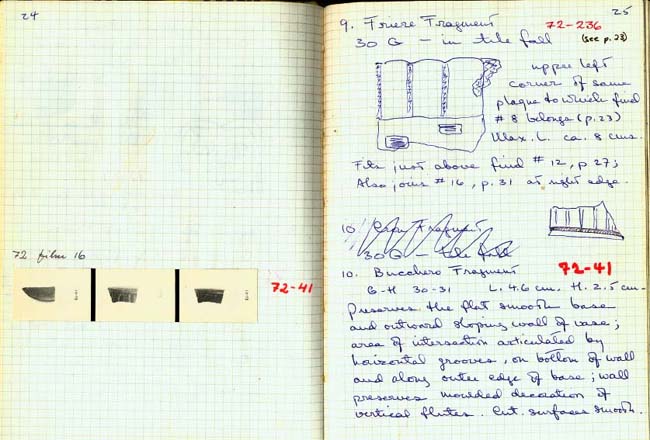 24
72 film 16
72-41
25
9. Frieze Fragment 72-236
30 G — in tile fall (see p. 23)
upper left
corner of same
plaque to which find
# 8 belongs (p. 23)
Max. L. ca. 8 cms.
Fits just above find # 12, p. 27;
Also joins # 16, p. 31 at right edge.
10 Fragment
30 G — tile fall
10. Bucchero Fragment 72-41
G-H 30-31 L. 4.6 cm. H. 2.5 cm.
Preserves the flat smooth base
and outward sloping wall of vase;
area of intersection articulated by
horizontal grooves, on bottom of wall
and along outer edge of base; wall
preserves moulded decoration of
vertical flutes. Cut. surfaces smooth.